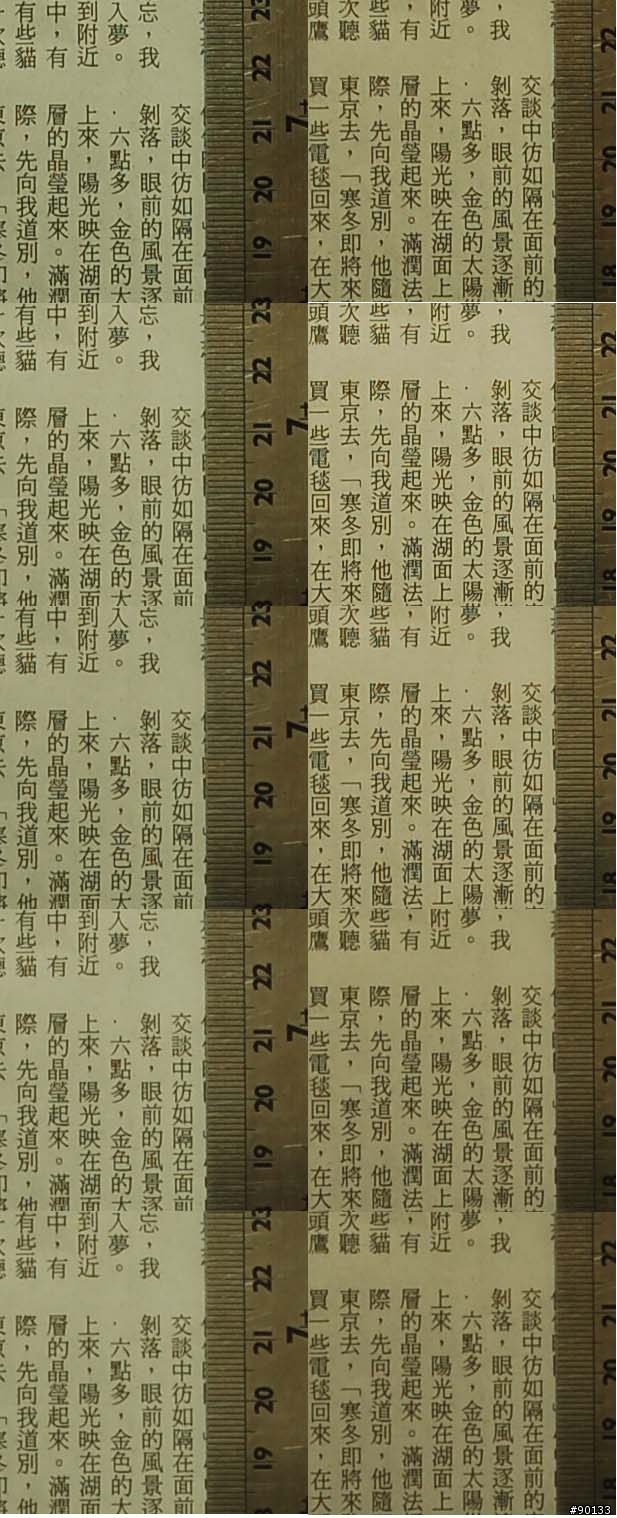 忘，我
入夢。
到附近
中，有
有些貓
交談中彷如隔在面前
剝落，眼前的風景逐
．六點多，金色的太
上來，陽光映在湖面
層的晶瑩起來。滿潤
際，先向我道別，他
23
22
21
20
19
7
，我
夢。
附近
，有
些貓
次聽
頭鷹
交談中彷如隔在面前的
剝落，眼前的風景逐漸
．六點多，金色的太陽
上來，陽光映在湖面上
層的晶瑩起來。滿潤法
際，先向我道別，他隨
東京去，「寒冬即將來
買一些電毯回來，在大
22
21
20
19
18
忘，我
入夢。
到附近
中，有
有些貓
交談中彷如隔在面前
剝落，眼前的風景逐
．六點多，金色的太
上來，陽光映在湖面
層的晶瑩起來。滿潤
際，先向我道別，他
23
22
21
20
19
7
，我
夢。
附近
，有
些貓
次聽
頭鷹
交談中彷如隔在面前的
剝落，眼前的風景逐漸
．六點多，金色的太陽
上來，陽光映在湖面上
層的晶瑩起來。滿潤法
際，先向我道別，他隨
東京去，「寒冬即將來
買一些電毯回來，在大
22
21
20
19
18
忘，我
入夢。
到附近
中，有
有些貓
交談中彷如隔在面前
剝落，眼前的風景逐
．六點多，金色的太
上來，陽光映在湖面
層的晶瑩起來。滿潤
際，先向我道別，他
23
22
21
20
19
7
，我
夢。
附近
，有
些貓
次聽
頭鷹
交談中彷如隔在面前的
剝落，眼前的風景逐漸
．六點多，金色的太陽
上來，陽光映在湖面上
層的晶瑩起來。滿潤法
際，先向我道別，他隨
東京去，「寒冬即將來
買一些電毯回來，在大
22
21
20
19
18
忘，我
入夢。
到附近
中，有
有些貓
交談中彷如隔在面前
剝落，眼前的風景逐
．六點多，金色的太
上來，陽光映在湖面
層的晶瑩起來。滿潤
際，先向我道別，他
23
22
21
20
19
7
，我
夢。
附近
，有
些貓
次聽
頭鷹
交談中彷如隔在面前的
剝落，眼前的風景逐漸
．六點多，金色的太陽
上來，陽光映在湖面上
層的晶瑩起來。滿潤法
際，先向我道別，他隨
東京去，「寒冬即將來
買一些電毯回來，在大
22
21
20
19
18
忘，我
入夢。
到附近
中，有
有些貓
交談中彷如隔在面前
剝落，眼前的風景逐
．六點多，金色的太
上來，陽光映在湖面
層的晶瑩起來。滿潤
際，先向我道別，他
23
22
21
20
19
7
，我
夢。
附近
，有
些貓
次聽
頭鷹
交談中彷如隔在面前的
剝落，眼前的風景逐漸
．六點多，金色的太陽
上來，陽光映在湖面上
層的晶瑩起來。滿潤法
際，先向我道別，他隨
東京去，「寒冬即將來
買一些電毯回來，在大
22
21
20
19
18
#90133